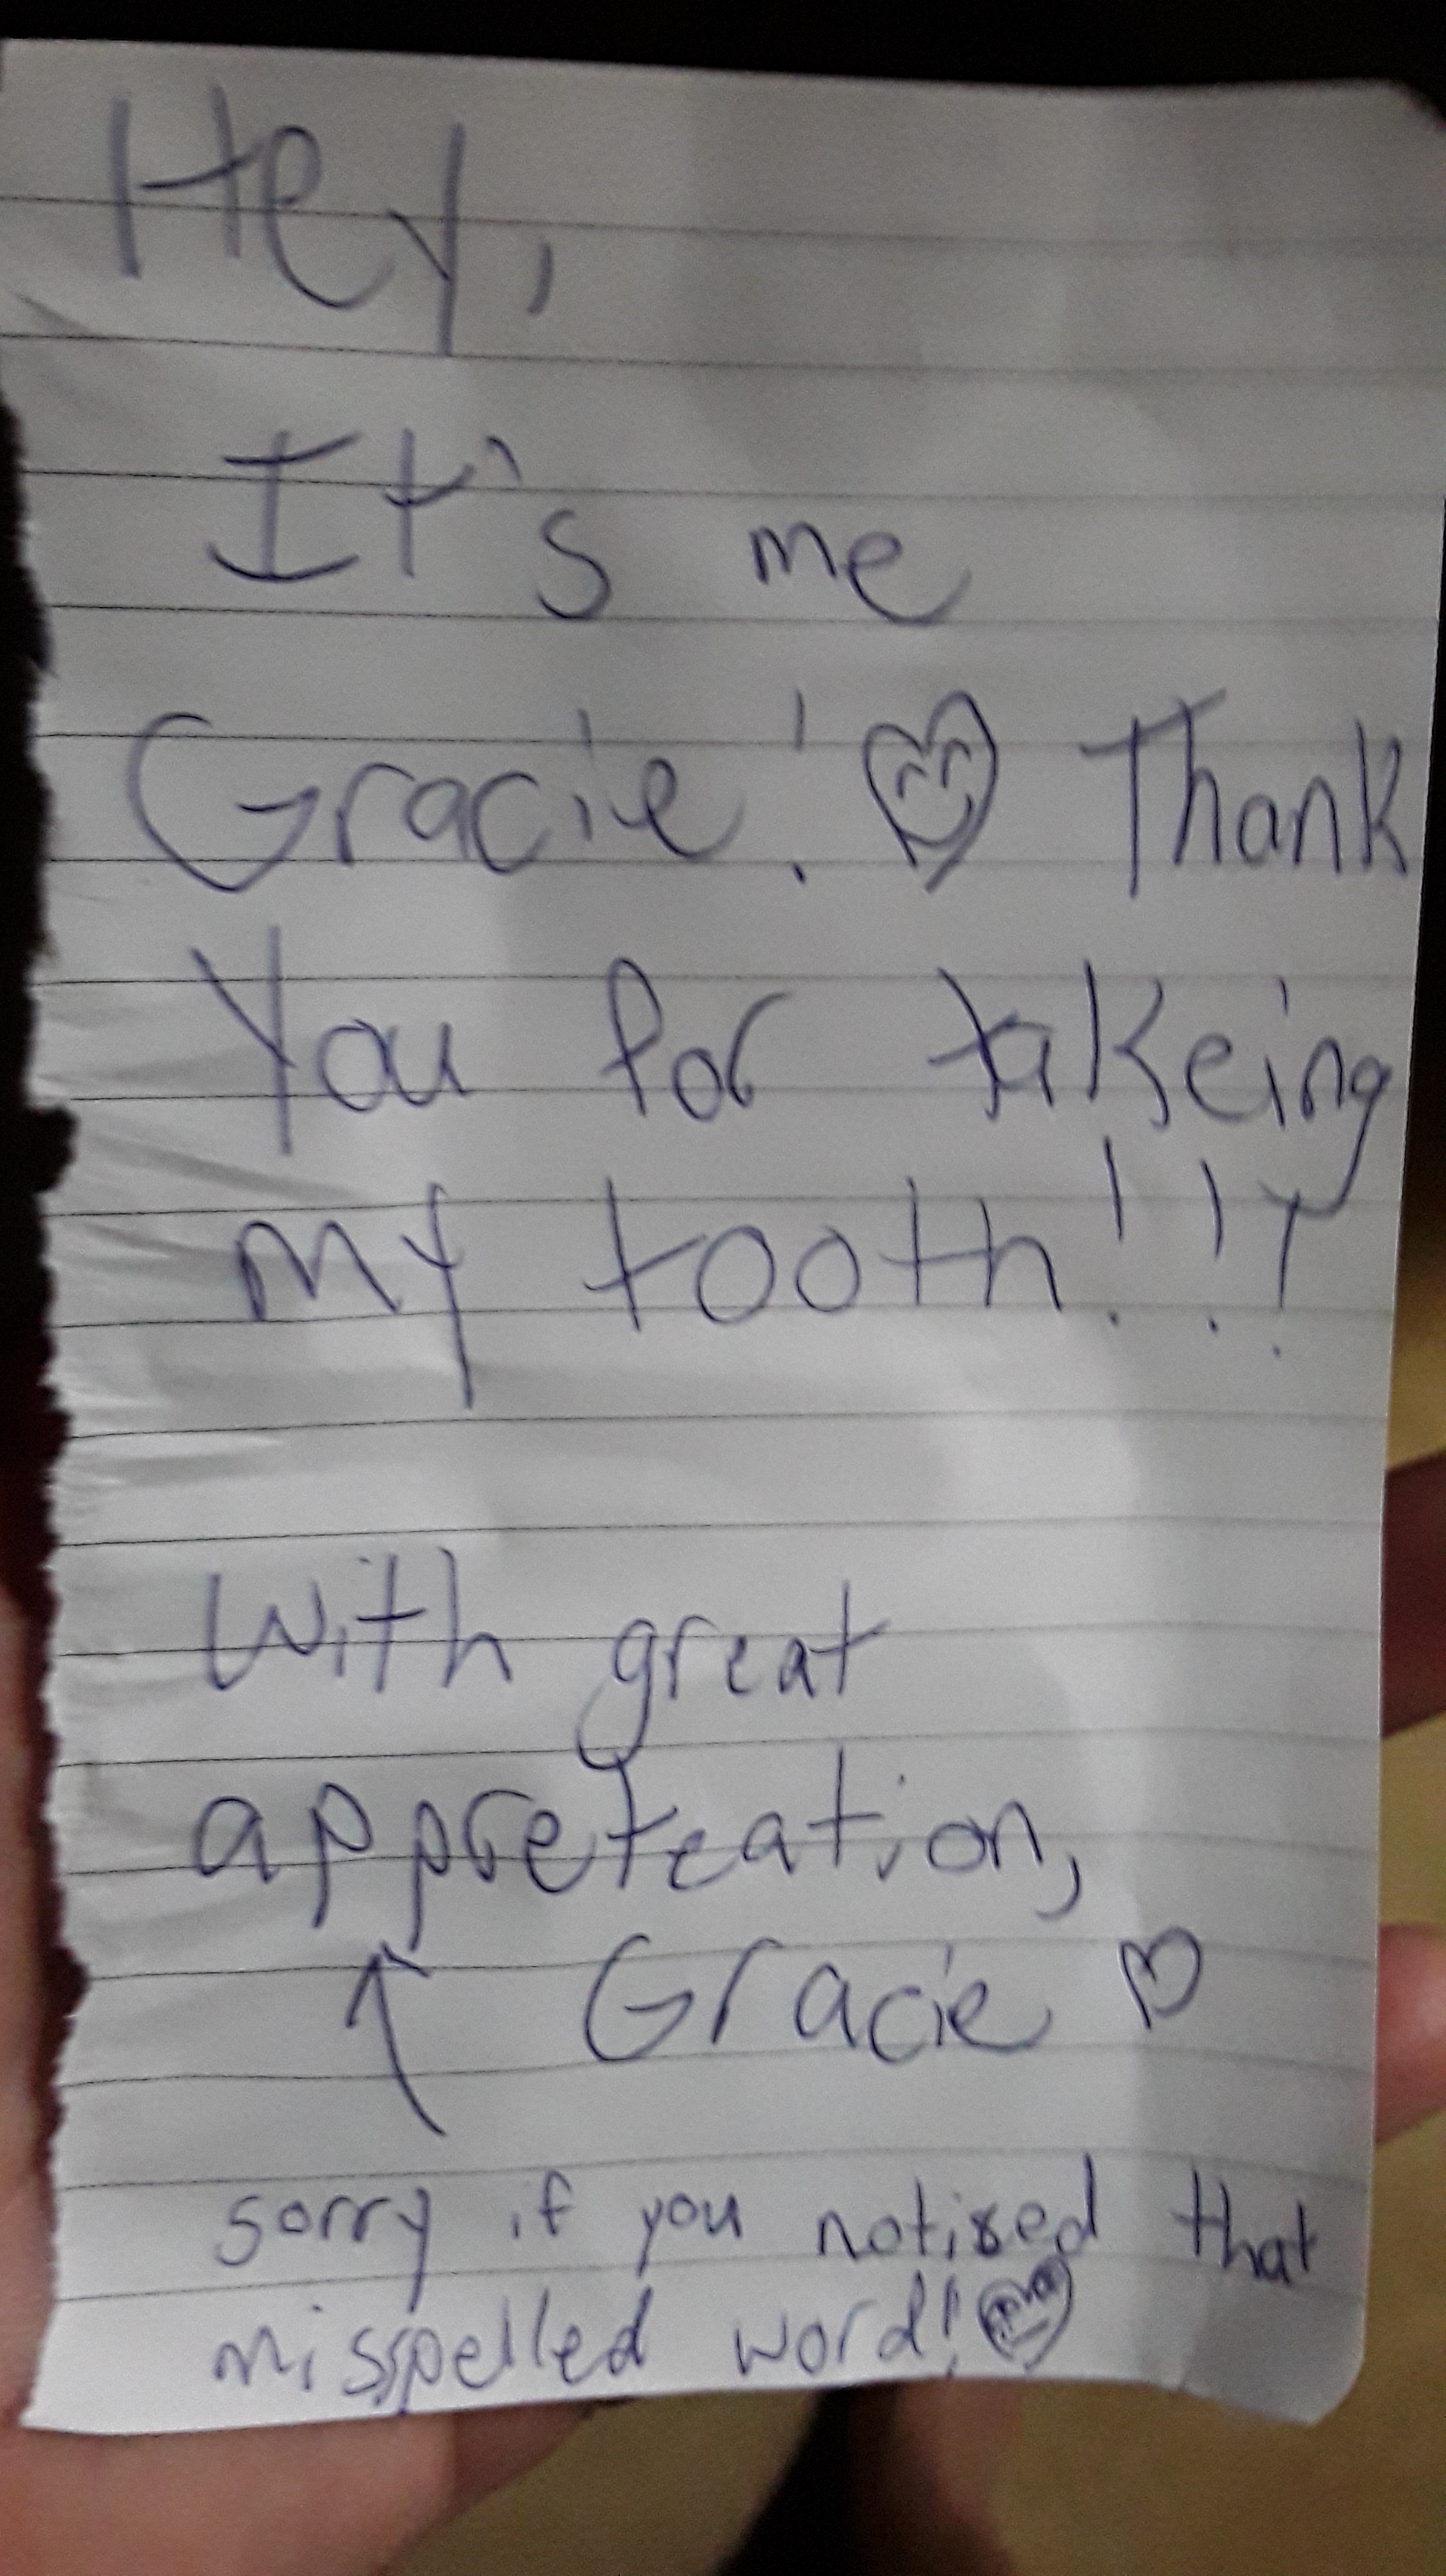 Hey,
It's me
Gracie! Thank
You for takeing
my tooth!!!
with great
appreteation,
Gracie ♡
sorry if you notised that
misspelled word!